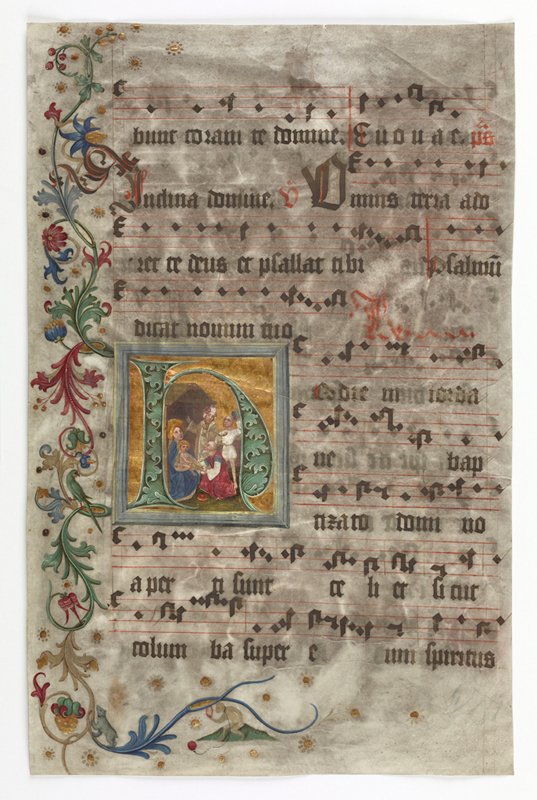 bunt coram te domine. E u o u a e. ps
Inclina domine. V Omnis terra ado
ret te deus et psallat tibi psalmū
dicat nomini tuo
odie in iorda
ne bap
tizato domino
aper ti sunt ce li et sicut
colum ba super e um spiritus